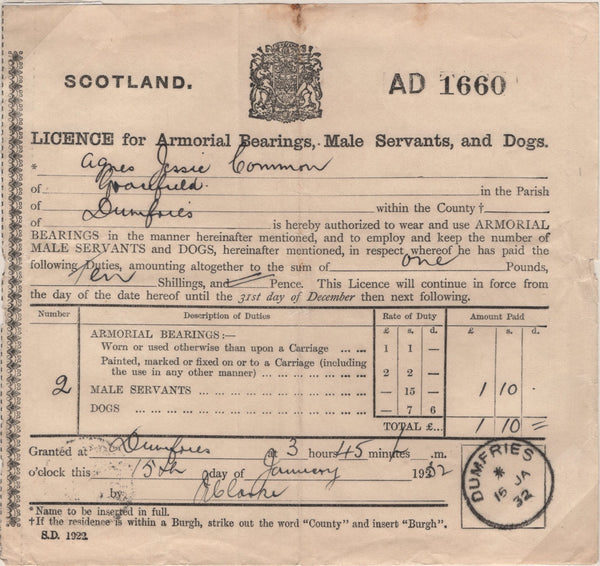 SCOTLAND.
AD 1660
LICENCE for Armorial Bearings, Male Servants, and Dogs.
* Agnes Jessie Common
of in the Parish
of Dumfries within the County †
of is hereby authorized to wear and use ARMORIAL
BEARINGS in the manner hereinafter mentioned, and to employ and keep the number of
MALE SERVANTS and DOGS, hereinafter mentioned, in respect whereof he has paid the
following Duties, amounting altogether to the sum of one Pounds,
Ten Shillings, and Pence. This Licence will continue in force from
the day of the date hereof until the 31st day of December then next following.
Number Description of Duties Rate of Duty Amount Paid
£ s. d. £ s. d.
ARMORIAL BEARINGS:—
Worn or used otherwise than upon a Carriage ... ... 1 1 —
Painted, marked or fixed on or to a Carriage (including
the use in any other manner) ... ... ... ... ... ... 2 2 —
2 MALE SERVANTS ... ... ... ... ... ... ... — 15 — 1 10 .
DOGS ... ... ... ... ... ... ... ... ... — 7 6
TOTAL £... 1 10 =
Granted at Dumfries at 3 hours 45 minutes .m.
o'clock this 15th day of January 1932
by
DUMFRIES
* 
15 JA
32
* Name to be inserted in full.
† If the residence is within a Burgh, strike out the word "County" and insert "Burgh".
S.D. 1922.